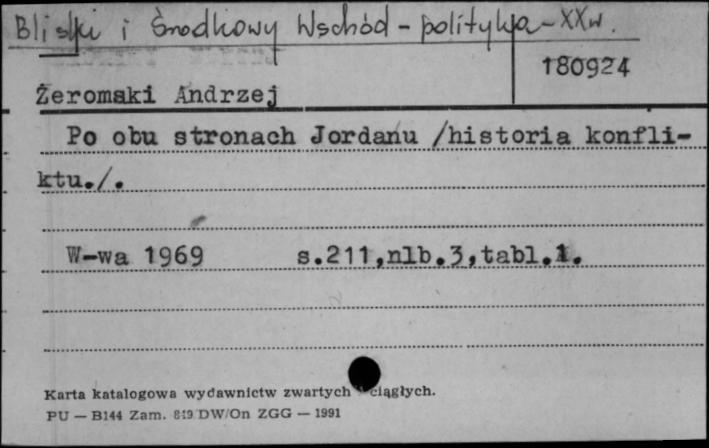 Bliski i Środkowy Wschód - polityka - XX w.
180924
Żeromski Andrzej
Po obu stronach Jordanu /historia konfli-
ktu./.
W-wa 1969 s.211,nlb.3,tabl.1.
Karta katalogowa wydawnictw zwartych ciągłych.
PU — B144 Zam. 819 DW/On ZGG — 1991